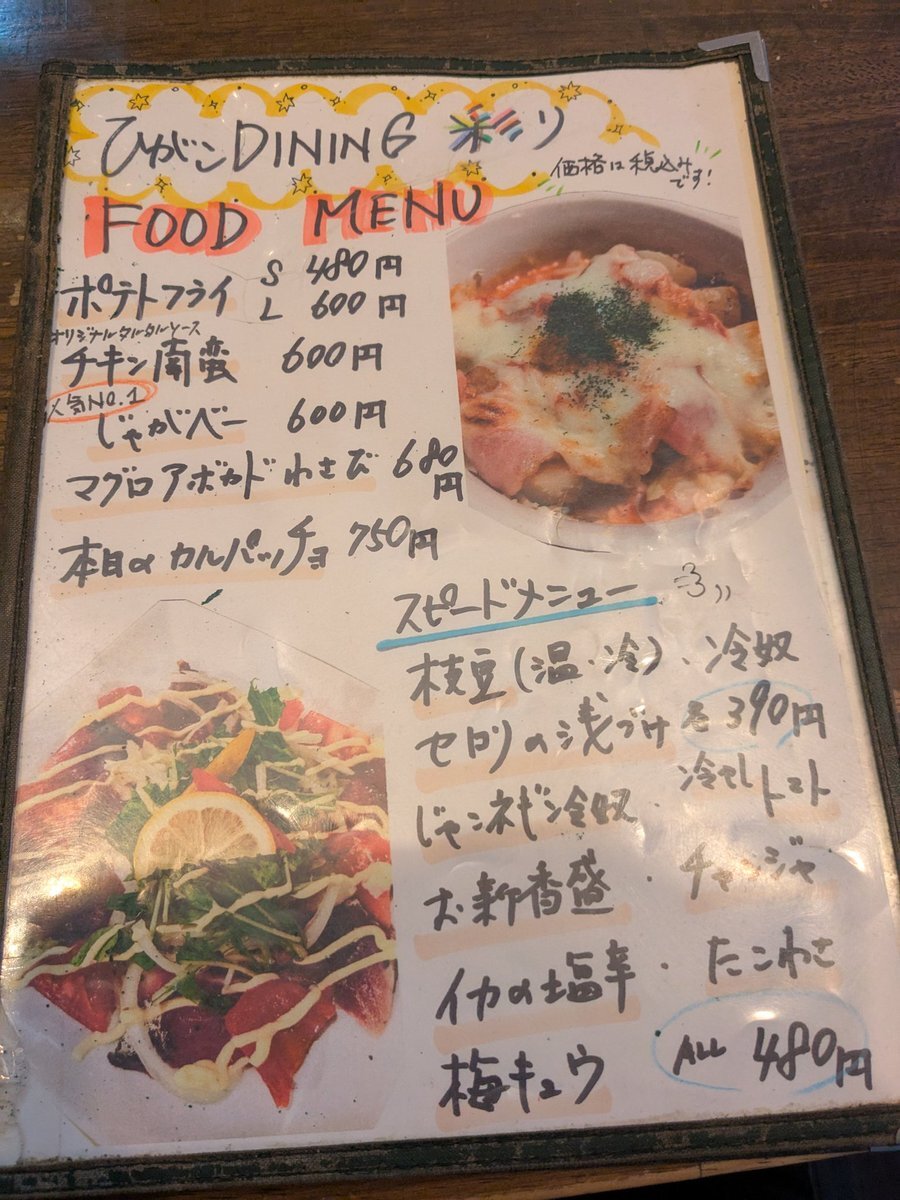 ひがこDINING 彩り
価格は税込み
です!
FOOD MENU
ポテトフライ S 480円
L 600円
オリジナルタルタルソース
チキン南蛮 600円
人気NO.1
じゃがべー 600円
マグロアボカドわさび 680円
本日のカルパッチョ 750円
スピードメニュー
枝豆(温・冷)・冷奴
セロリの浅づけ 各390円
じゃンネギ冷奴・冷やしトマト
お新香盛・チャンジャ
イカの塩辛・たこわさ
梅キュウ ALL 480円